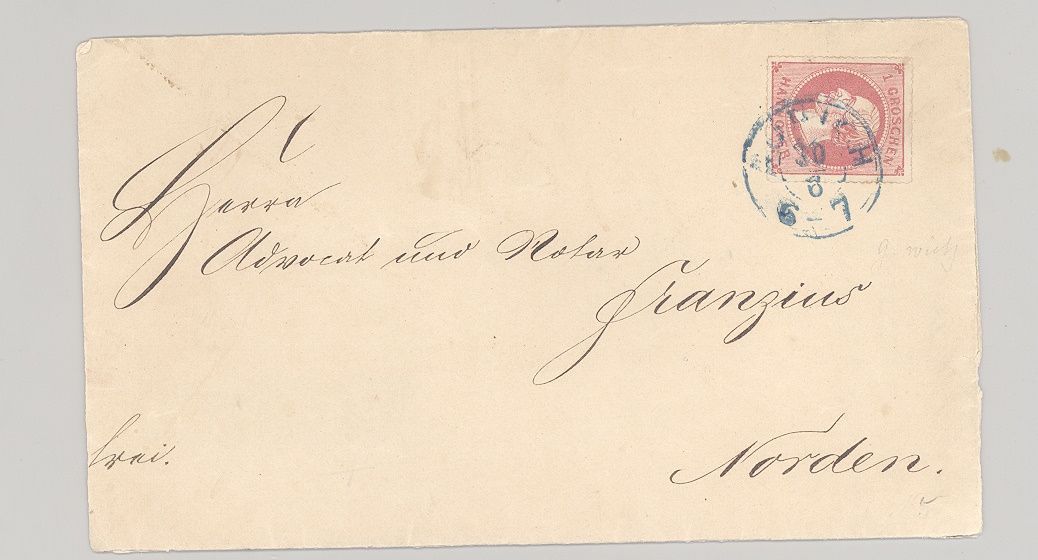 1 GROSCHEN
HANNOVER
AURICH
30
8
6-7
Herrn
Advocat und Notar
Franzius
frei.
Norden.